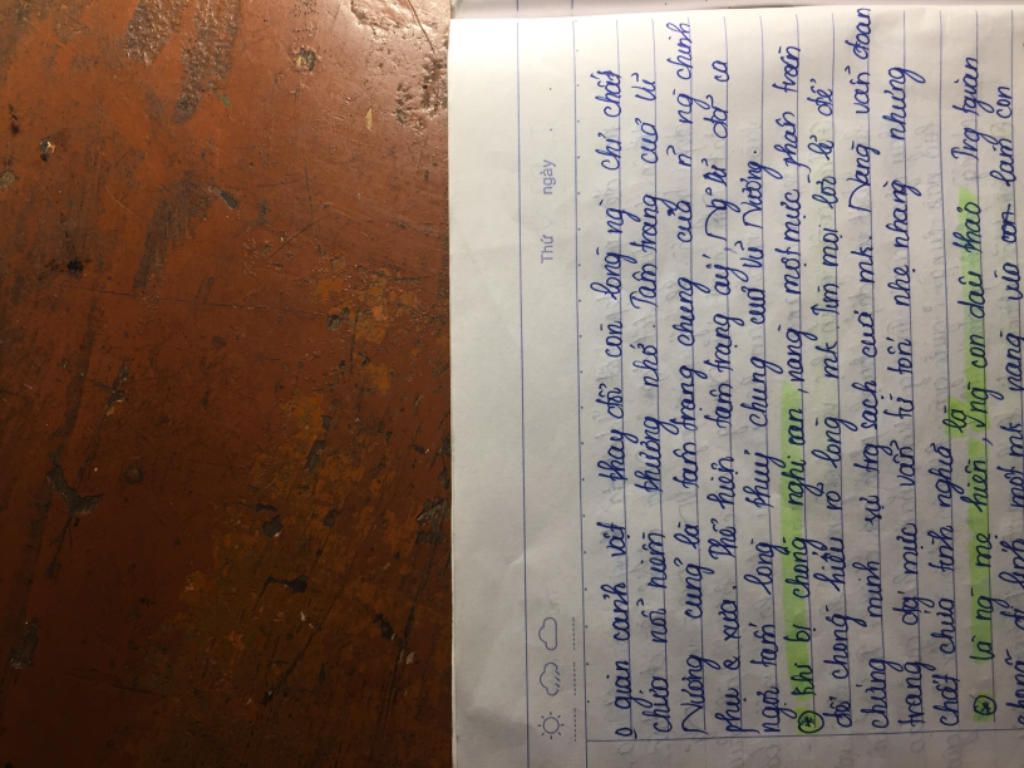 Thứ ngày
o giản cảnh vật thay đổi còn lòng ng chỉ chất
chứa nỗi niềm thương nhớ. Tâm trạng của Vũ
Nương cũng là tâm trạng chung của n ng chinh
phụ xưa. Thể hiện tâm trạng ấy, Ng Dữ đã ca
ngợi tấm lòng thuỷ chung của Vũ Nương.
* Khi bị chồng nghi oan, nàng một mực phân trần
để chồng hiểu rõ lòng mk. Tìm mọi lời lẽ để
chứng minh sự trg sạch của mk. Nàng vẫn đoan
trang đg mực vẫn từ tốn nhẹ nhàng nhưng
chất chứa tình nghĩa
* là ng mẹ hiền, là ng con dâu thảo. Trg tgian
chồng đi lính một mk nàng vừa làm con